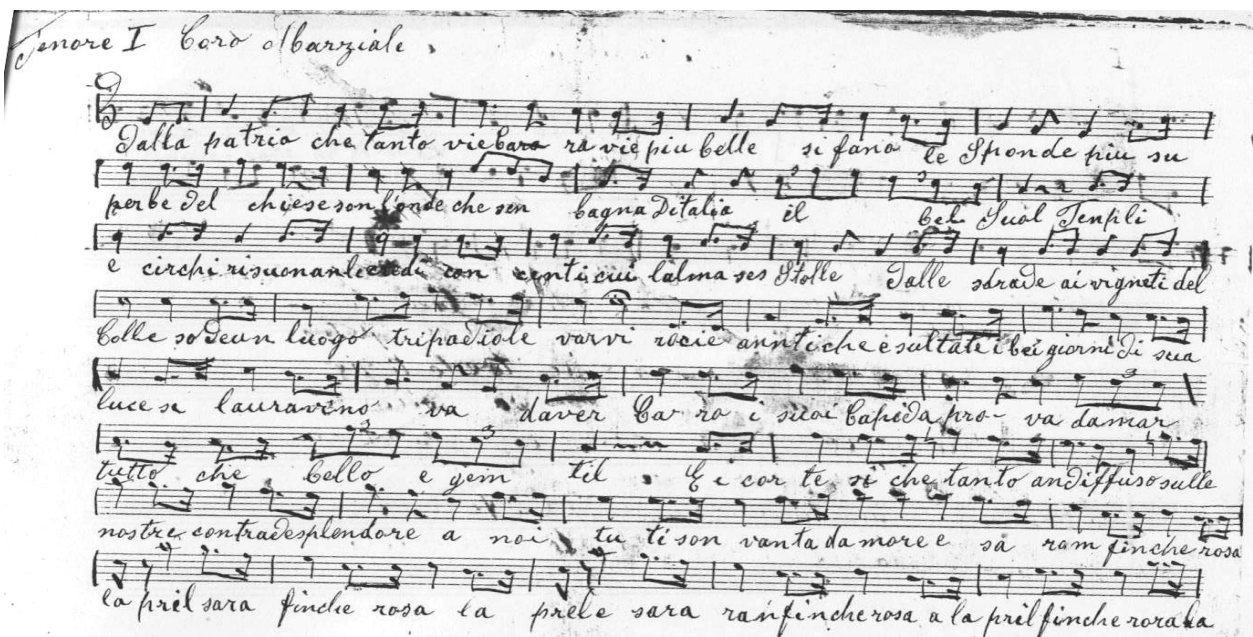 Tenore I Coro Marziale
Dalla patria che tanto vie cara ra vie piu belle si fano le Sponde piu su
perbe del chiese son l'onde che sen bagna D'italia il bel Suol Tenpli
e circhi risuonan con centi cui lalma ses Stolle dalle strade ai vigneti del
Colle so deun luogo tripadiole varvi rocie anntiche esultate i bei giorni di sua
luce si lauravino va daver Ca ro i suoi Capi da pro- va damar
tutto che bello e gem til. E i cor te si che tanto an diffuso sulle
nostre contrade splendore a noi tu ti son vanta da more e sa ram finche rosa
la pril sara finche rosa la prele sara ranfinche rosa a la pril finche rora la